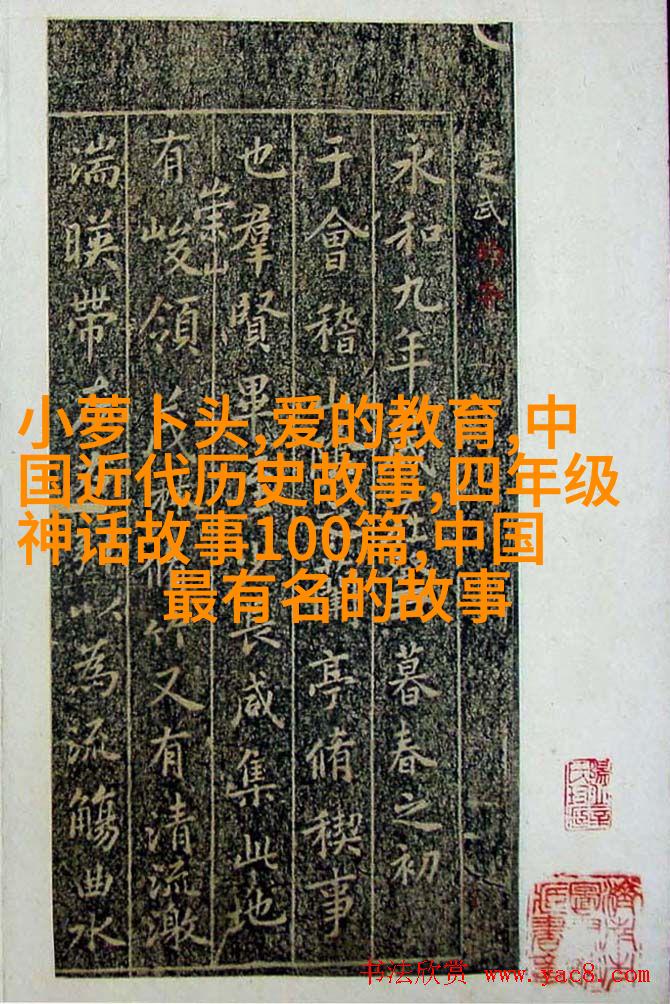 定武
永和九年暮春之初
于會稽山亭脩稧事
也羣賢畢長咸集此地
有崇山峻領茂林脩竹又有清流激
湍暎帶左以為流觴曲水
小萝卜头,爱的教育,中
国近代历史故事,四年级
神话故事100篇,中国
最有名的故事
书法欣赏 www.yac8.com